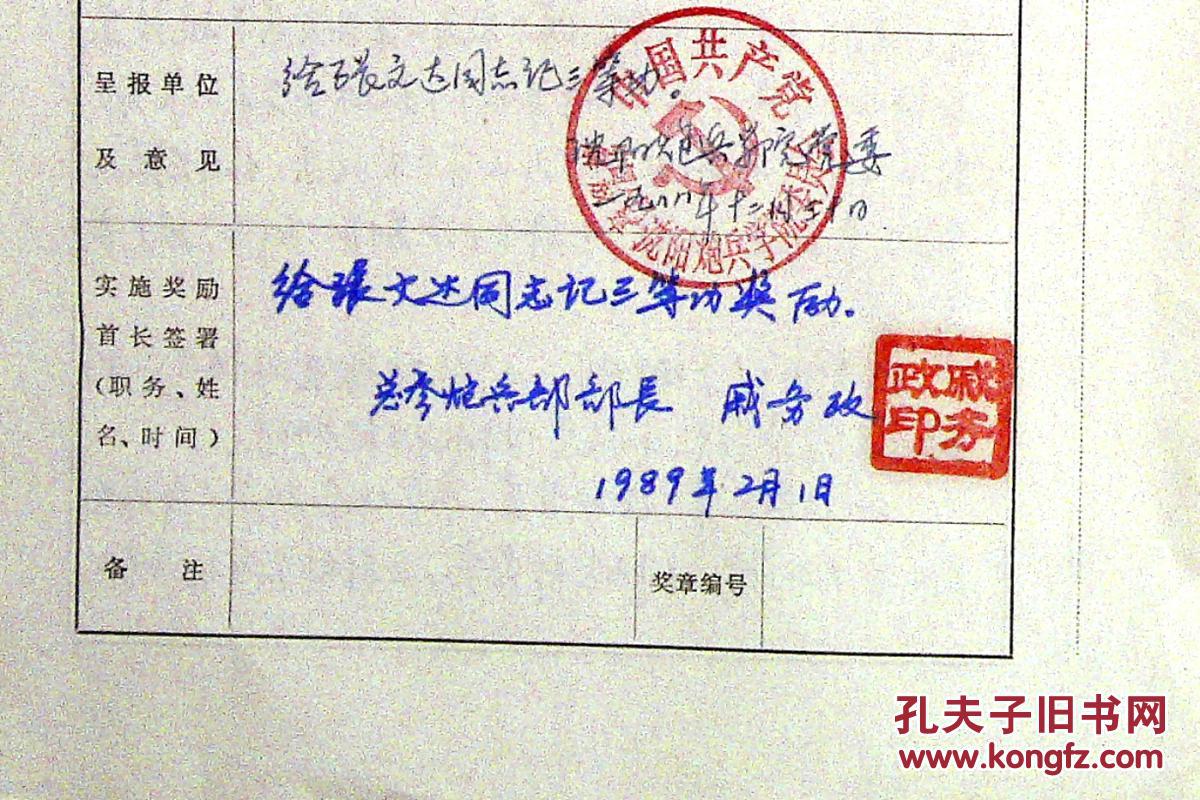 呈报单位
及意见
给张文达同志记三等功。
沈阳炮兵学院党委
一九八八年十二月三十日
中国共产党
沈阳炮兵学院委员会
实施奖励
首长签署
（职务、姓
名、时间）
给張文达同志记三等功奖励。
总参炮兵部部長 戚务政
1989年2月1日
戚务
政印
备注
奖章编号
孔夫子旧书网
www.kongfz.com